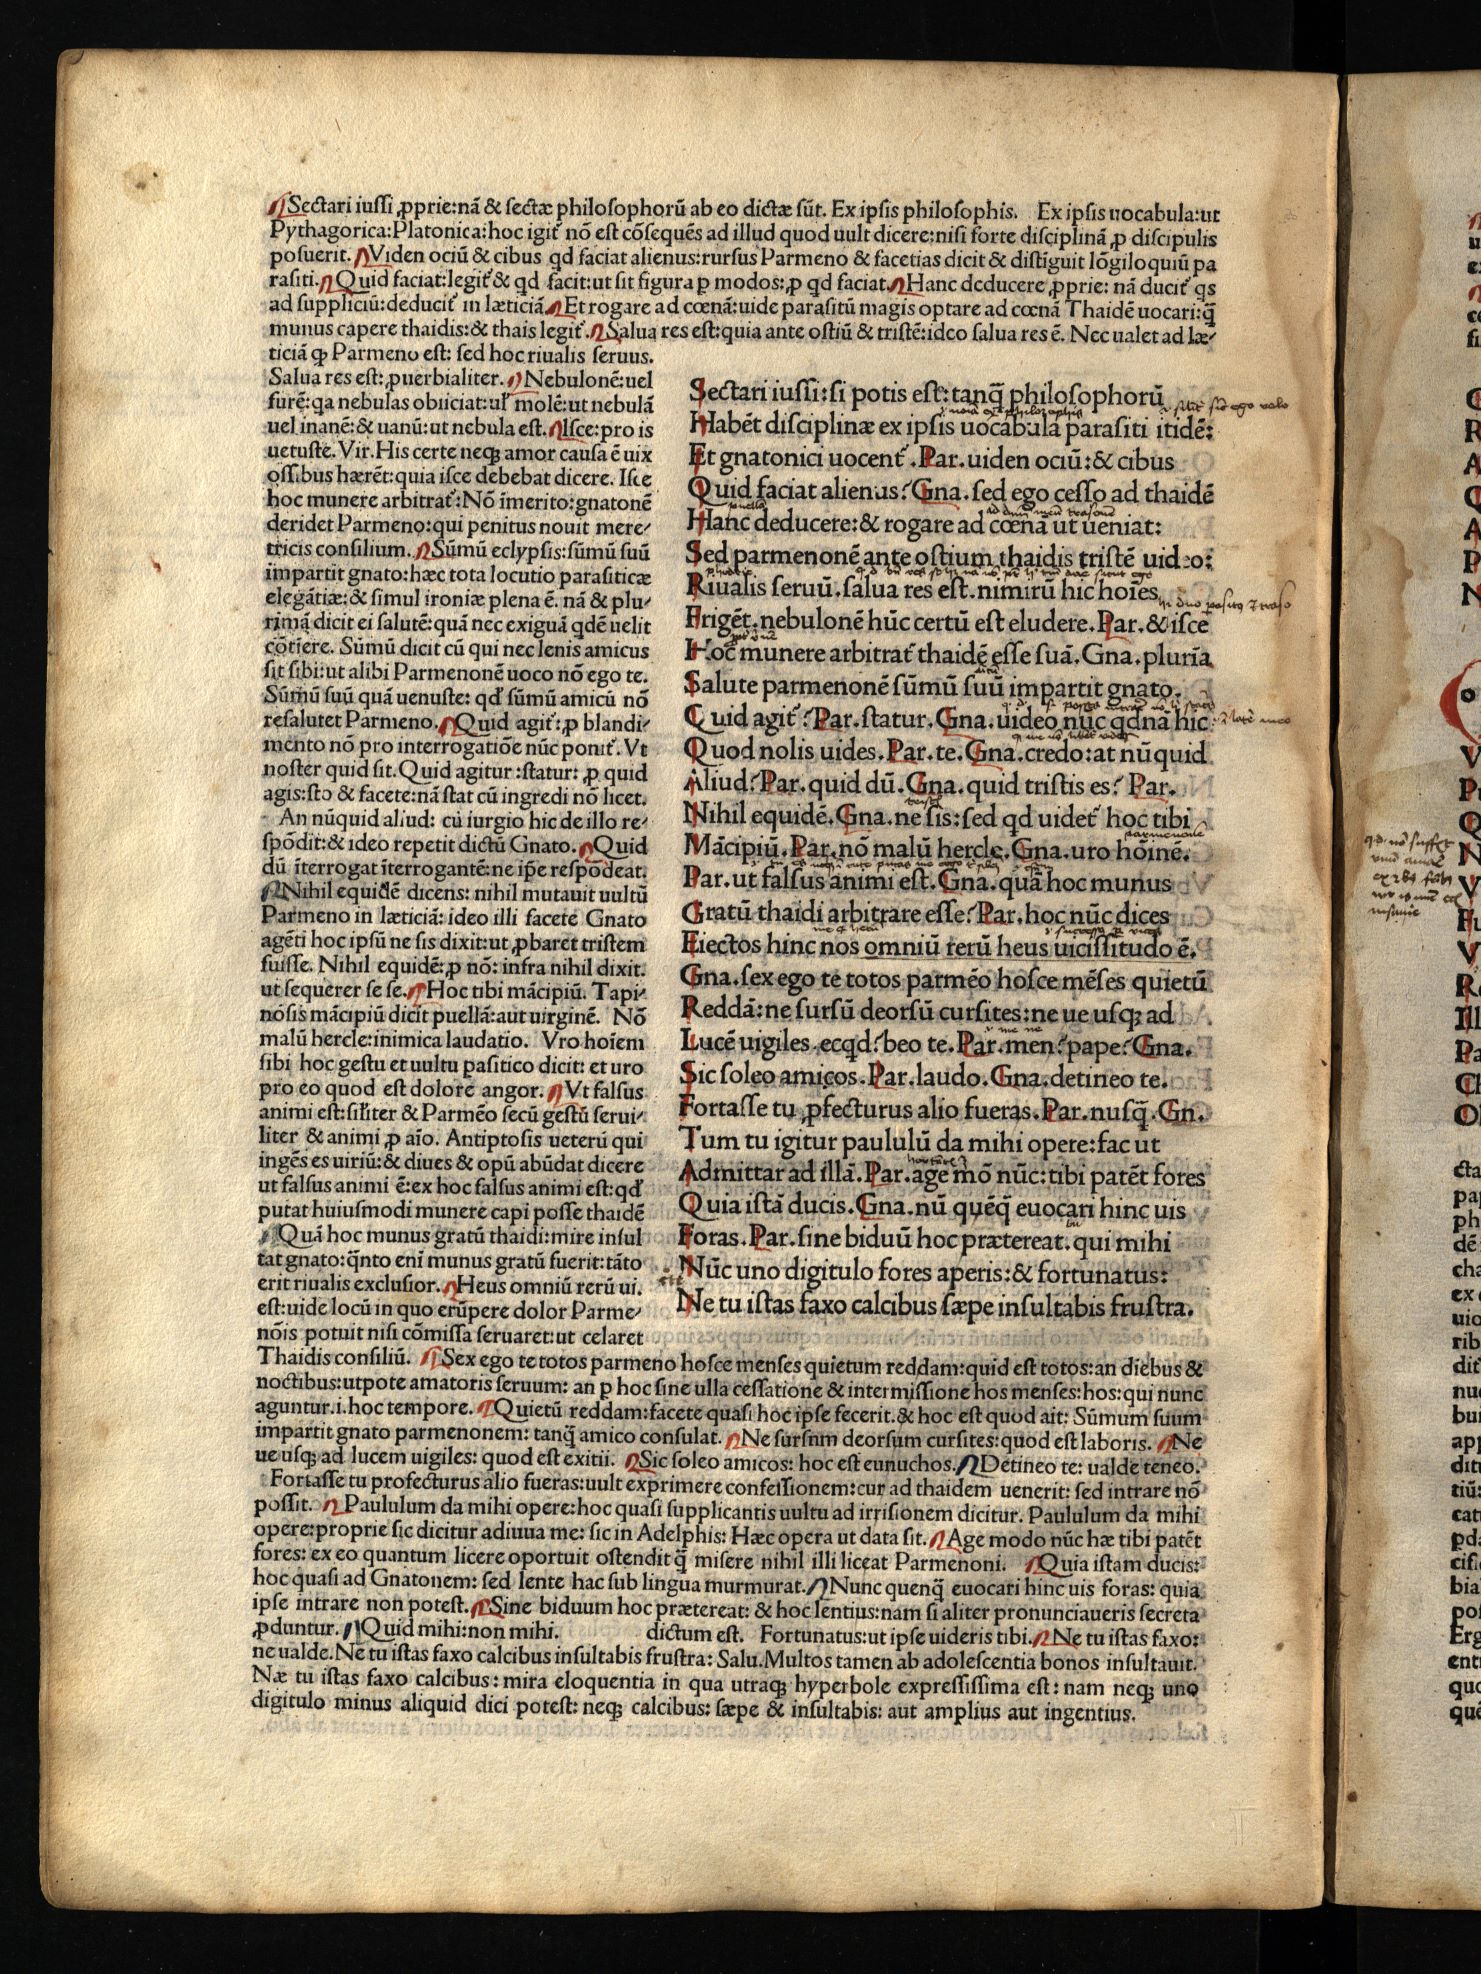 Sectari iussi ꝓprie:nã & sectæ philosophorũ ab eo dictæ sũt. Ex ipsis philosophis. Ex ipsis uocabula:ut
Pythagorica:Platonica:hoc igit̃ nõ est cõsequẽs ad illud quod uult dicere:nisi forte disciplinã ꝓ discipulis
posuerit. Viden ociũ & cibus qd faciat alienus:rursus Parmeno & facetias dicit & distiguit lõgiloquiũ pa
rasiti. Quid faciat:legit̃ & qd facit:ut sit figura p modos:ꝓ qd faciat. Hanc deducere ꝓprie: nã ducit̃ qs
ad suppliciũ:deducit̃ in læticiã. Et rogare ad cœnã:uide parasitũ magis optare ad cœnã Thaidẽ uocari:q̃
munus capere thaidis:& thais legit̃. Salua res est:quia ante ostiũ & tristẽ:ideo salua res ẽ. Nec ualet ad læ⸗
ticiã ꝙ Parmeno est: sed hoc riualis seruus.
Salua res est:ꝓuerbialiter. Nebulonẽ:uel
furẽ:qa nebulas obiiciat:ul̃ molẽ:ut nebulã
uel inanẽ:& uanũ:ut nebula est. Isce:pro is
uetuste. Vir. His certe neqꝫ amor causa ẽ uix
ossibus hærẽt:quia isce debebat dicere. Isce
hoc munere arbitrat̃:Nõ ĩmerito:gnatonẽ
deridet Parmeno:qui penitus nouit mere⸗
tricis consilium. Sũmũ eclypsis:sũmũ suũ
impartit gnato:hæc tota locutio parasiticæ
elegãtiæ:& simul ironiæ plena ẽ. nã & plu⸗
rimã dicit ei salutẽ:quã nec exiguã qdẽ uelit
cõtĩere. Sũmũ dicit cũ qui nec lenis amicus
sit sibi:ut alibi Parmenonẽ uoco nõ ego te.
Sũmũ suũ quã uenuste: qđ sũmũ amicũ nõ
resalutet Parmeno. Quid agit̃:ꝓ blandi⸗
mento nõ pro interrogatiõe nũc ponit̃. Vt
noster quid sit. Quid agitur:statur: ꝓ quid
agis:sto & facete:nã stat cũ ingredi nõ licet.
An nũquid aliud: cũ iurgio hic de illo re⸗
spõdit:& ideo repetit dictũ Gnato. Quid
dũ ĩterrogat ĩterrogantẽ:ne ip̃e respõdeat.
Nihil equidẽ dicens: nihil mutauit uultũ
Parmeno in læticiã: ideo illi facete Gnato
agẽti hoc ipsũ ne sis dixit:ut ꝓbaret tristem
fuisse. Nihil equidẽ:ꝓ nõ: infra nihil dixit.
ut sequerer se se. Hoc tibi mãcipiũ. Tapi⸗
nõsis mãcipiũ dicit puellã:aut uirginẽ. Nõ
malũ hercle:inimica laudatio. Vro hoĩem
sibi hoc gestu et uultu pasitico dicit: et uro
pro eo quod est dolore angor. Vt falsus
animi est:siliter & Parmẽo secũ gestũ serui⸗
liter & animi ꝓ aĩo. Antiptosis ueterũ qui
ingẽs es uiriũ:& diues & opũ abũdat dicere
ut falsus animi ẽ:ex hoc falsus animi est:qđ
putat huiusmodi munere capi posse thaidẽ
Quã hoc munus gratũ thaidi:mire insul
tat gnato:q̃nto enĩ munus gratũ fuerit:tãto
erit riualis exclusior. Heus omniũ rerũ ui.
est:uide locũ in quo erũpere dolor Parme⸗
nõis potuit nisi cõmissa seruaret:ut celaret
Thaidis consiliũ. Sex ego te totos parmeno hosce menses quietum reddam:quid est totos:an diebus &
noctibus:utpote amatoris seruum: an p hoc sine ulla cessatione & intermissione hos menses:hos:qui nunc
aguntur.i.hoc tempore. Quietũ reddam:facete quasi hoc ipse fecerit.& hoc est quod ait: Sũmum suum
impartit gnato parmenonem: tanq̃ amico consulat. Ne sursnm deorsum cursites:quod est laboris. Ne
ue usqꝫ ad lucem uigiles: quod est exitii. Sic soleo amicos: hoc est eunuchos. Detineo te: ualde teneo.
Fortasse tu profecturus alio fueras:uult exprimere confessionem:cur ad thaidem uenerit: sed intrare nõ
possit. Paululum da mihi opere:hoc quasi supplicantis uultu ad irrisionem dicitur. Paululum da mihi
opere:proprie sic dicitur adiuua me: sic in Adelphis: Hæc opera ut data sit. Age modo nũc hæ tibi patẽt
fores: ex eo quantum licere oportuit ostendit q̃ misere nihil illi liceat Parmenoni. Quia istam ducis:
hoc quasi ad Gnatonem: sed lente hac sub lingua murmurat. Nunc quenq̃ euocari hinc uis foras: quia
ipse intrare non potest. Sine biduum hoc prætereat: & hoc lentius:nam si aliter pronunciaueris secreta
ꝓduntur. Quid mihi:non mihi. dictum est. Fortunatus:ut ipse uideris tibi. Ne tu istas faxo:
ne ualde. Ne tu istas faxo calcibus insultabis frustra: Salu. Multos tamen ab adolescentia bonos insultauit.
Næ tu istas faxo calcibus: mira eloquentia in qua utraqꝫ hyperbole expressissima est: nam neqꝫ uno
digitulo minus aliquid dici potest: neqꝫ calcibus: sæpe & insultabis: aut amplius aut ingentius.
Sectari iussi:si potis est:tanq̃ philosophorũ
Habẽt disciplinæ ex ipsis uocabula parasiti itidẽ:
Et gnatonici uocent̃. Par. uiden ociũ:& cibus
Quid faciat alienus? Gna. sed ego cesso ad thaidẽ
Hanc deducere:& rogare ad cœnã ut ueniat:
Sed parmenonẽ ante ostium thaidis tristẽ uideo:
Riualis seruũ. salua res est. nimirũ hic hoĩes
Frigẽt. nebulonẽ hũc certũ est eludere. Par. & isce
Hoc munere arbitrat̃ thaidẽ esse suã. Gna. plurĩa
Salute parmenonẽ sũmũ suũ impartit gnato.
Quid agit̃? Par. statur. Gna. uideo nũc qdnã hic
Quod nolis uides. Par. te. Gna. credo:at nũquid
Aliud? Par. quid dũ. Gna. quid tristis es? Par.
Nihil equidẽ. Gna. ne sis:sed qd uidet̃ hoc tibi
Mãcipiũ. Par. nõ malũ hercle. Gna. uro hoĩnẽ.
Par. ut falsus animi est. Gna. quã hoc munus
Gratũ thaidi arbitrare esse? Par. hoc nũc dices
Eiectos hinc nos omniũ rerũ heus uicissitudo ẽ.
Gna. sex ego te totos parmẽo hosce mẽses quietũ
Reddã:ne sursũ deorsũ cursites:ne ue usqꝫ ad
Lucẽ uigiles. ecqd? beo te. Par. men? pape? Gna.
Sic soleo amicos. Par. laudo. Gna. detineo te.
Fortasse tu ꝓfecturus alio fueras. Par. nusq̃. Gn.
Tum tu igitur paululũ da mihi opere:fac ut
Admittar ad illã. Par. age mõ nũc:tibi patẽt fores
Quia istã ducis. Gna. nũ quẽq̃ euocari hinc uis
Foras. Par. sine biduũ hoc prætereat. qui mihi
Nũc uno digitulo fores aperis:& fortunatus:
Ne tu istas faxo calcibus sæpe insultabis frustra.